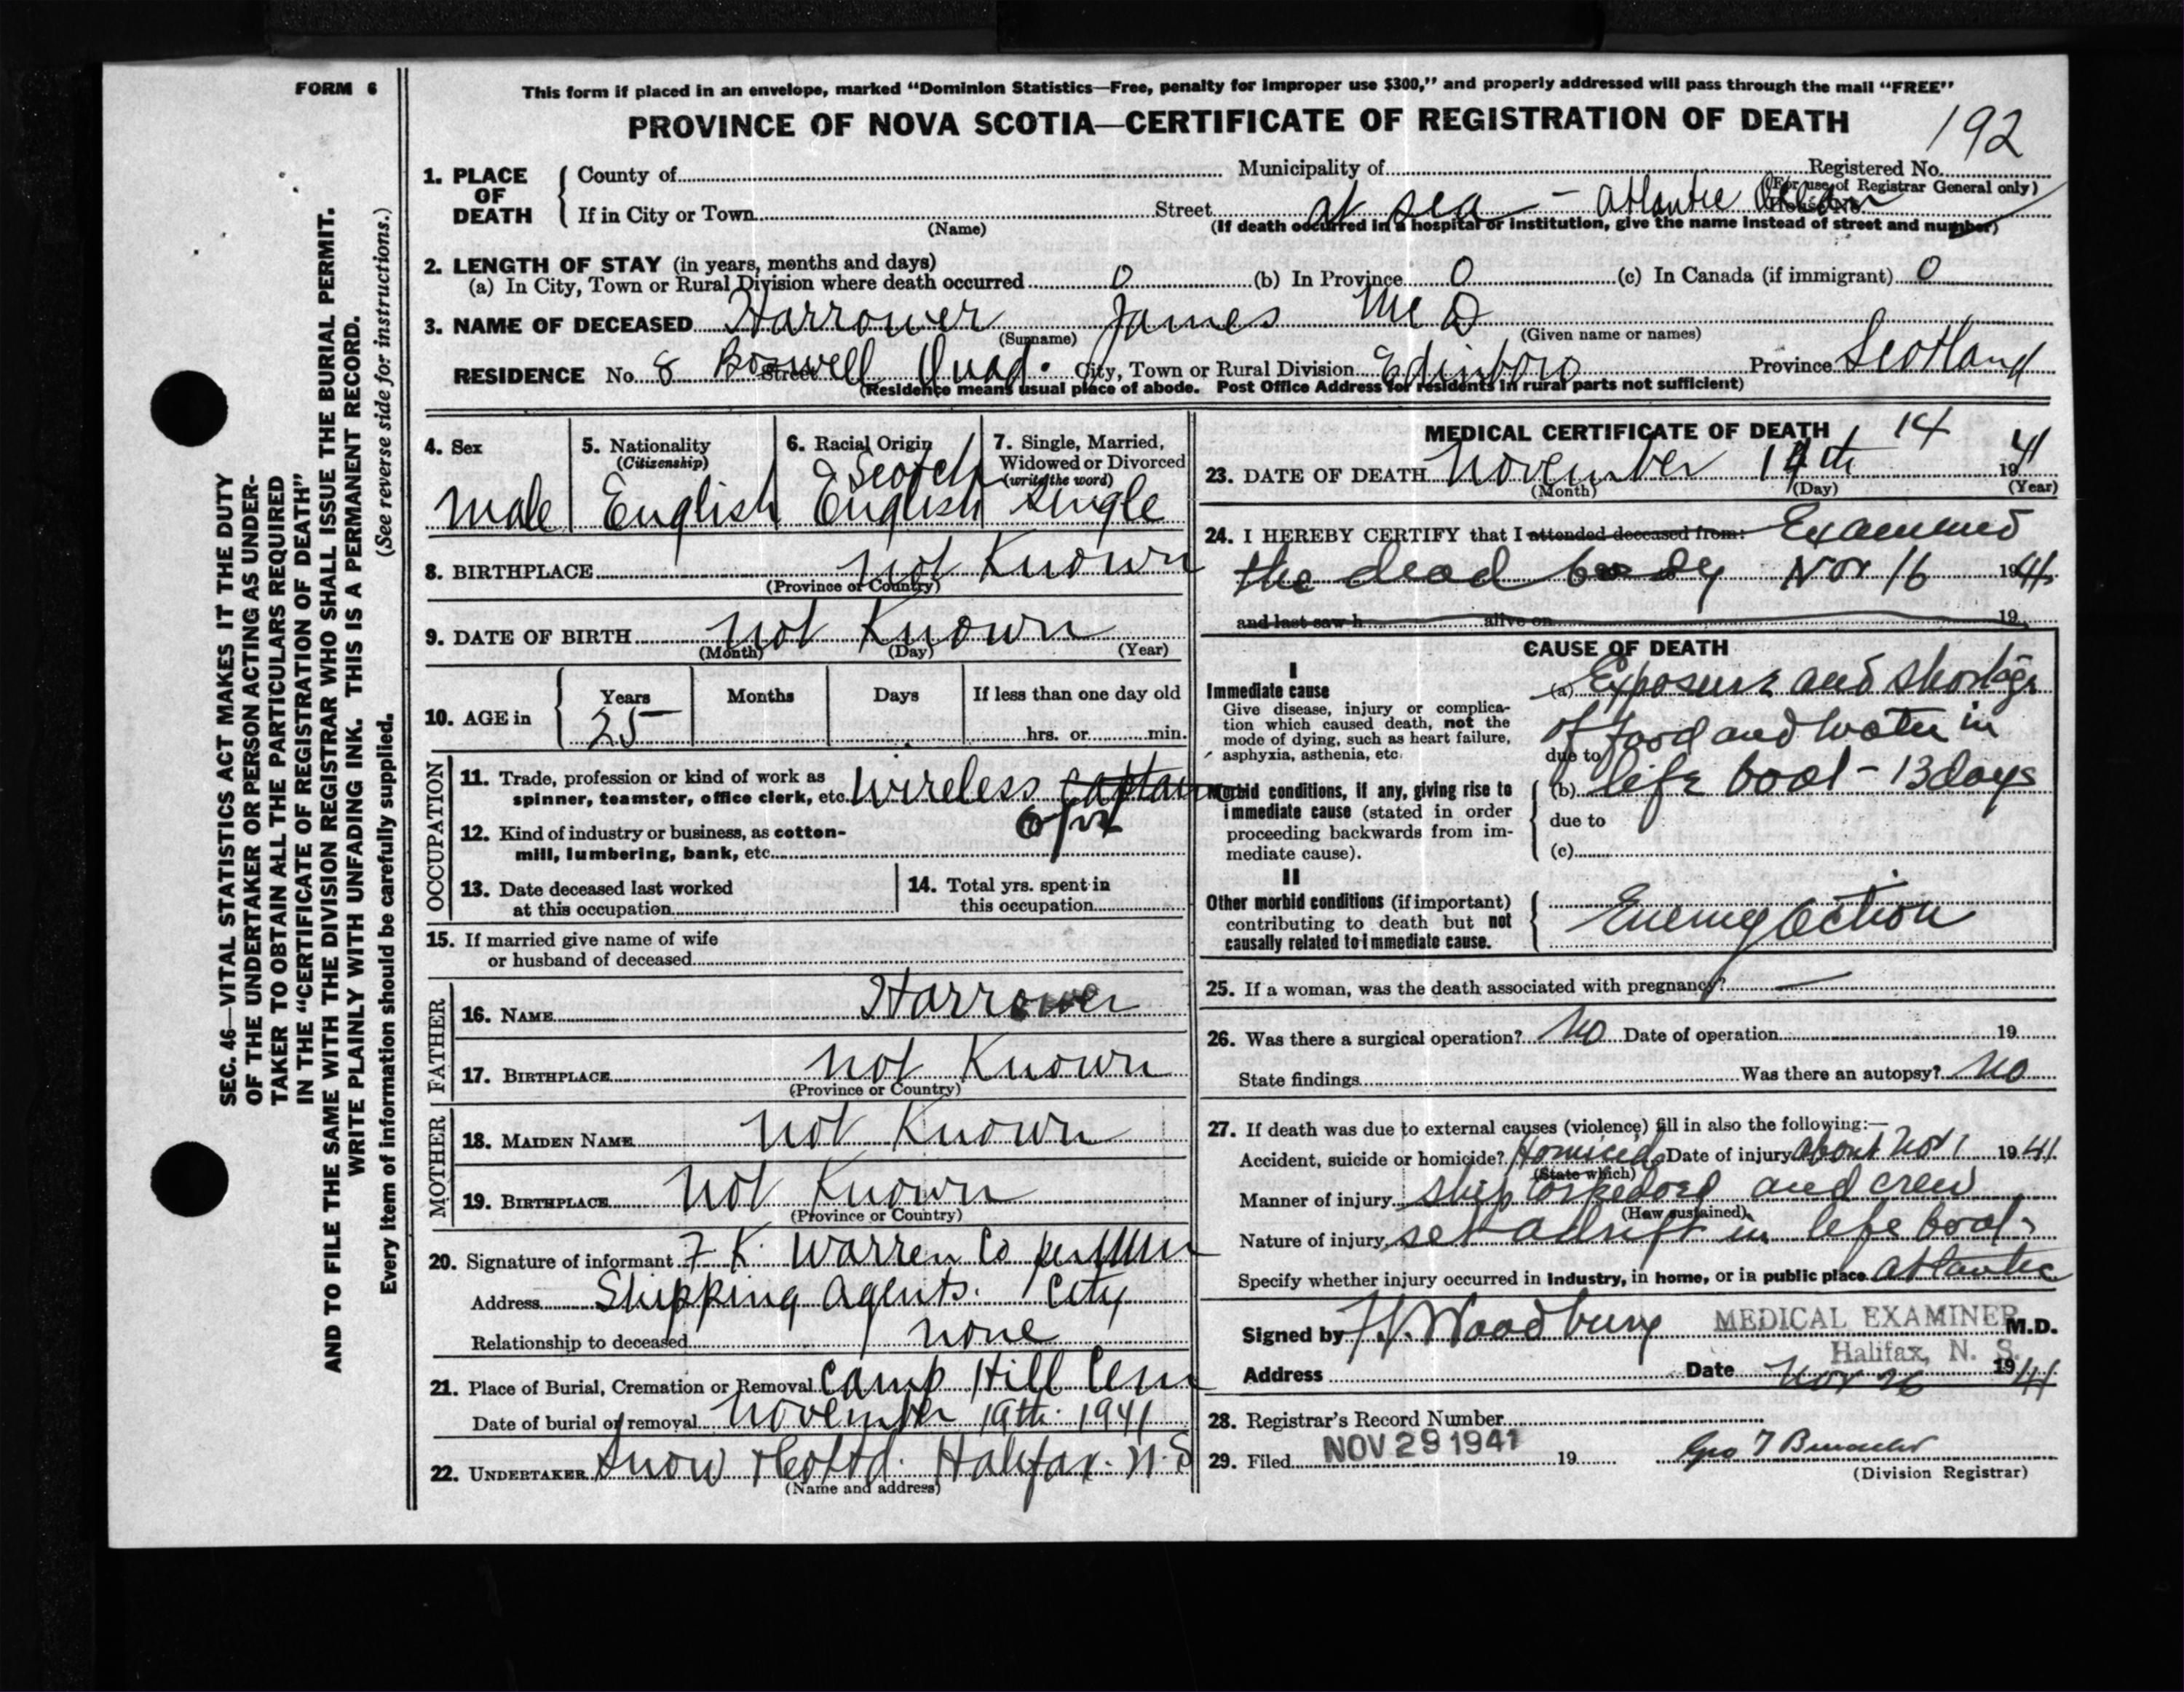 FORM 6
This form if placed in an envelope, marked "Dominion Statistics—Free, penalty for improper use $300," and properly addressed will pass through the mail "FREE"
PROVINCE OF NOVA SCOTIA—CERTIFICATE OF REGISTRATION OF DEATH
192
1. PLACE OF DEATH
County of
Municipality of
Registered No.
(For use of Registrar General only)
If in City or Town
(Name)
Street at sea - Atlantic Ocean
House No.
(If death occurred in a hospital or institution, give the name instead of street and number)
2. LENGTH OF STAY (in years, months and days)
(a) In City, Town or Rural Division where death occurred 0 (b) In Province 0 (c) In Canada (if immigrant) 0
3. NAME OF DECEASED Harrower James McD
(Surname) (Given name or names)
RESIDENCE No. 8 Boswell Quad. Street City, Town or Rural Division Edinboro Province Scotland
(Residence means usual place of abode. Post Office Address for residents in rural parts not sufficient)
4. Sex
Male
5. Nationality
(Citizenship)
English
6. Racial Origin
Scotch
English
7. Single, Married,
Widowed or Divorced
(write the word)
Single
8. BIRTHPLACE not Known
(Province or Country)
9. DATE OF BIRTH not Known
(Month) (Day) (Year)
10. AGE in
Years Months Days If less than one day old
25 hrs. or min.
OCCUPATION
11. Trade, profession or kind of work as
spinner, teamster, office clerk, etc. wireless captain
opr
12. Kind of industry or business, as cotton-
mill, lumbering, bank, etc.
13. Date deceased last worked
at this occupation
14. Total yrs. spent in
this occupation
15. If married give name of wife
or husband of deceased
FATHER
16. NAME Harrower
17. BIRTHPLACE not Known
(Province or Country)
MOTHER
18. MAIDEN NAME not Known
19. BIRTHPLACE not Known
(Province or Country)
20. Signature of informant F K Warren Co per
Address Shipping Agents. City
Relationship to deceased none
21. Place of Burial, Cremation or Removal Camp Hill Cem
Date of burial or removal November 19th 1941
22. UNDERTAKER Snow & Co Ltd. Halifax. N.S
(Name and address)
MEDICAL CERTIFICATE OF DEATH
14
23. DATE OF DEATH November 14th 1941
(Month) (Day) (Year)
24. I HEREBY CERTIFY that I attended deceased from: Examined
the dead body Nov 16 1941
and last saw h alive on 19
CAUSE OF DEATH
I
Immediate cause
Give disease, injury or complica-
tion which caused death, not the
mode of dying, such as heart failure,
asphyxia, asthenia, etc.
(a) Exposure and shortage
of food and water in
due to
Morbid conditions, if any, giving rise to
immediate cause (stated in order
proceeding backwards from im-
mediate cause).
(b) life boat - 13 days
due to
(c)
II
Other morbid conditions (if important)
contributing to death but not
causally related to immediate cause.
Enemy action
25. If a woman, was the death associated with pregnancy? —
26. Was there a surgical operation? No Date of operation 19
State findings Was there an autopsy? No
27. If death was due to external causes (violence) fill in also the following:—
Accident, suicide or homicide? Homicide Date of injury about Nov 1 1941
(State which)
Manner of injury ship torpedoed and crew
(How sustained)
Nature of injury set adrift in life boat
Specify whether injury occurred in industry, in home, or in public place Atlantic
Signed by Woodbury MEDICAL EXAMINER M.D.
Halifax, N. S.
Address Date Nov 26 1941
28. Registrar's Record Number
29. Filed NOV 29 1941 19
(Division Registrar)
SEC. 46—VITAL STATISTICS ACT MAKES IT THE DUTY
OF THE UNDERTAKER OR PERSON ACTING AS UNDER-
TAKER TO OBTAIN ALL THE PARTICULARS REQUIRED
IN THE "CERTIFICATE OF REGISTRATION OF DEATH"
AND TO FILE THE SAME WITH THE DIVISION REGISTRAR WHO SHALL ISSUE THE BURIAL PERMIT.
WRITE PLAINLY WITH UNFADING INK. THIS IS A PERMANENT RECORD.
Every item of information should be carefully supplied. (See reverse side for instructions.)